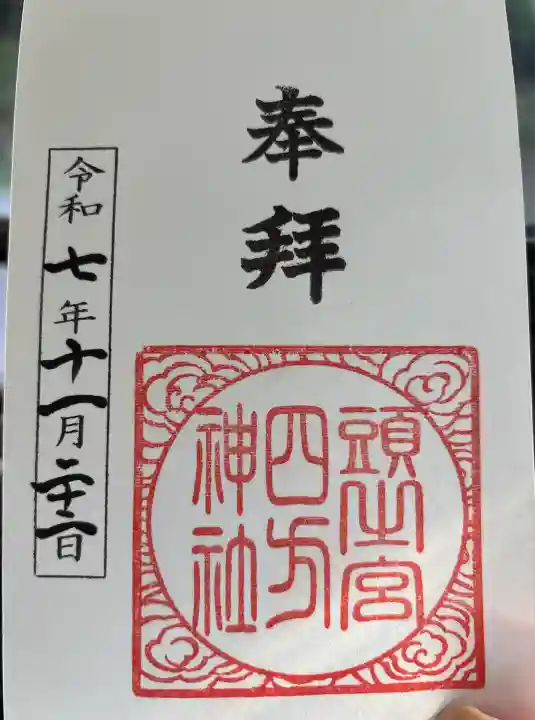 奉拝
頭之宮
四方
神社
令和七年十一月二十二日